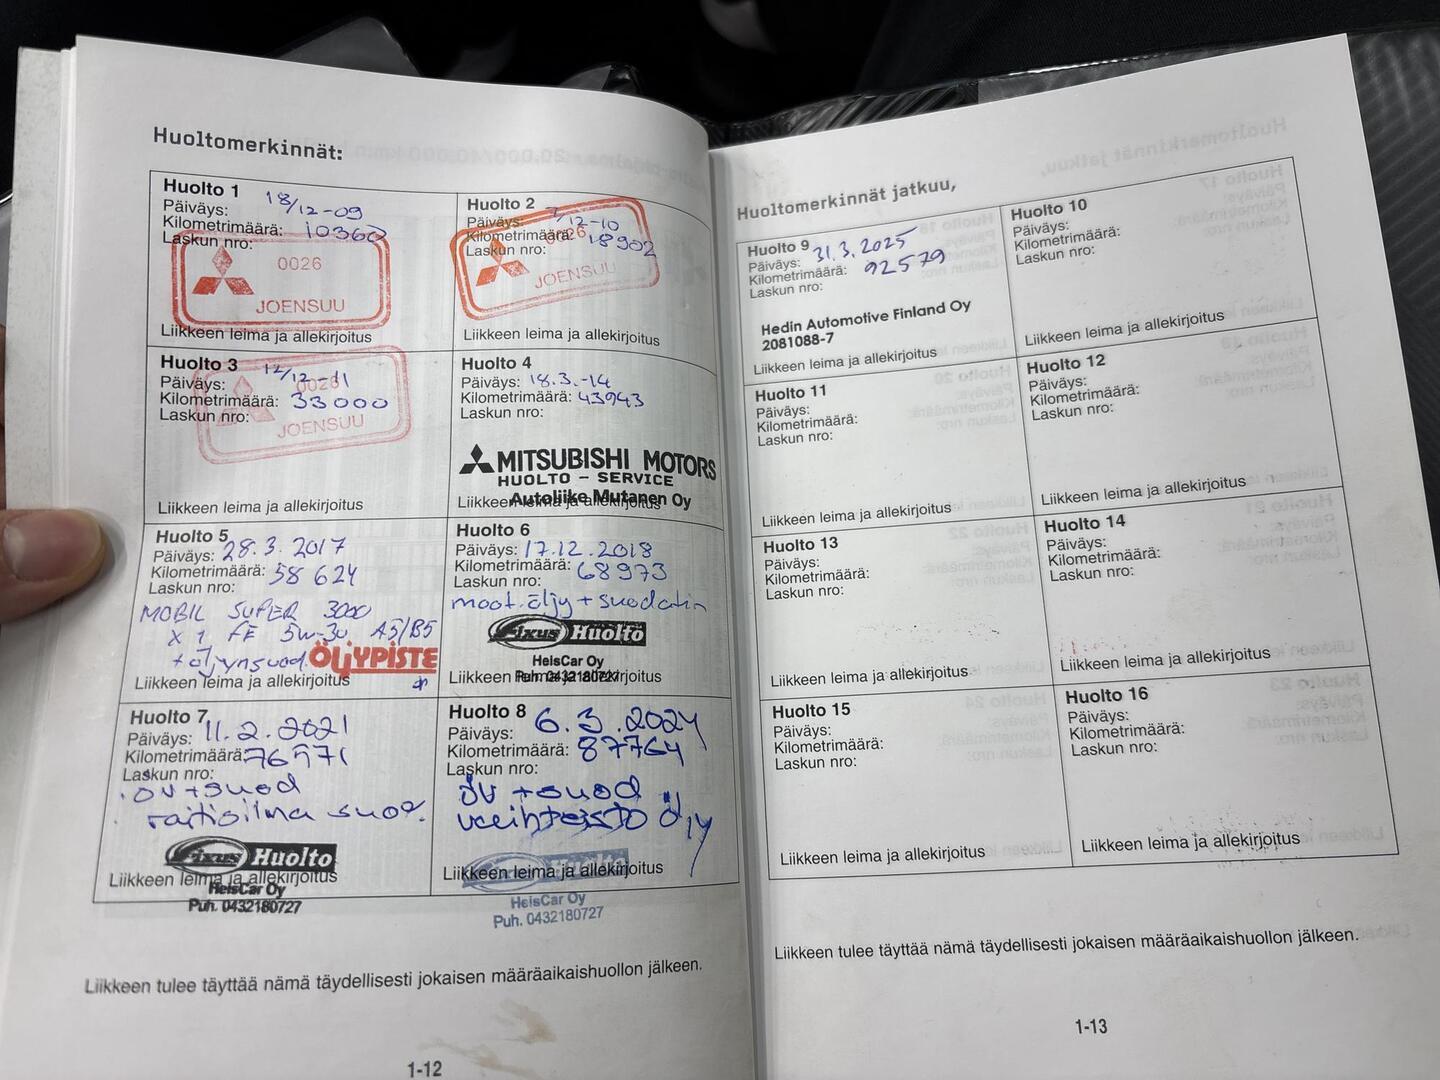 Huoltomerkinnät:
Huolto 1
Päiväys: 18/12-09
Kilometrimäärä: 10360
Laskun nro:
0026
JOENSUU
Liikkeen leima ja allekirjoitus
Huolto 2
Päiväys: 7/12-10
Kilometrimäärä: 18902
Laskun nro:
0026
JOENSUU
Liikkeen leima ja allekirjoitus
Huolto 3
Päiväys: 12/12-11
Kilometrimäärä: 33000
Laskun nro:
0026
JOENSUU
Liikkeen leima ja allekirjoitus
Huolto 4
Päiväys: 18.3.-14
Kilometrimäärä: 43943
Laskun nro:
MITSUBISHI MOTORS
HUOLTO - SERVICE
Autoliike Mutanen Oy
Liikkeen leima ja allekirjoitus
Huolto 5
Päiväys: 28.3.2017
Kilometrimäärä: 58624
Laskun nro:
MOBIL SUPER 3000
X1 FE 5W-30 A5/B5
+ öljynsuod. ÖLJYPISTE
Liikkeen leima ja allekirjoitus
Huolto 6
Päiväys: 17.12.2018
Kilometrimäärä: 68973
Laskun nro:
moot.öljy + suodatin
Fixus Huolto
HeisCar Oy
Puh. 0432180727
Liikkeen leima ja allekirjoitus
Huolto 7
Päiväys: 11.2.2021
Kilometrimäärä: 76571
Laskun nro:
öv + suod
raitisilma suod.
Fixus Huolto
Liikkeen leima ja allekirjoitus
HeisCar Oy
Puh. 0432180727
Huolto 8
Päiväys: 6.3.2024
Kilometrimäärä: 87764
Laskun nro:
öv + suod
vaihteisto öljy
Fixus Huolto
Liikkeen leima ja allekirjoitus
HeisCar Oy
Puh. 0432180727
Liikkeen tulee täyttää nämä täydellisesti jokaisen määräaikaishuollon jälkeen.
1-12
Huoltomerkinnät jatkuu,
Huolto 9
Päiväys: 31.3.2025
Kilometrimäärä: 92579
Laskun nro:
Hedin Automotive Finland Oy
2081088-7
Liikkeen leima ja allekirjoitus
Huolto 10
Päiväys:
Kilometrimäärä:
Laskun nro:
Liikkeen leima ja allekirjoitus
Huolto 11
Päiväys:
Kilometrimäärä:
Laskun nro:
Liikkeen leima ja allekirjoitus
Huolto 12
Päiväys:
Kilometrimäärä:
Laskun nro:
Liikkeen leima ja allekirjoitus
Huolto 13
Päiväys:
Kilometrimäärä:
Laskun nro:
Liikkeen leima ja allekirjoitus
Huolto 14
Päiväys:
Kilometrimäärä:
Laskun nro:
Liikkeen leima ja allekirjoitus
Huolto 15
Päiväys:
Kilometrimäärä:
Laskun nro:
Liikkeen leima ja allekirjoitus
Huolto 16
Päiväys:
Kilometrimäärä:
Laskun nro:
Liikkeen leima ja allekirjoitus
Liikkeen tulee täyttää nämä täydellisesti jokaisen määräaikaishuollon jälkeen.
1-13